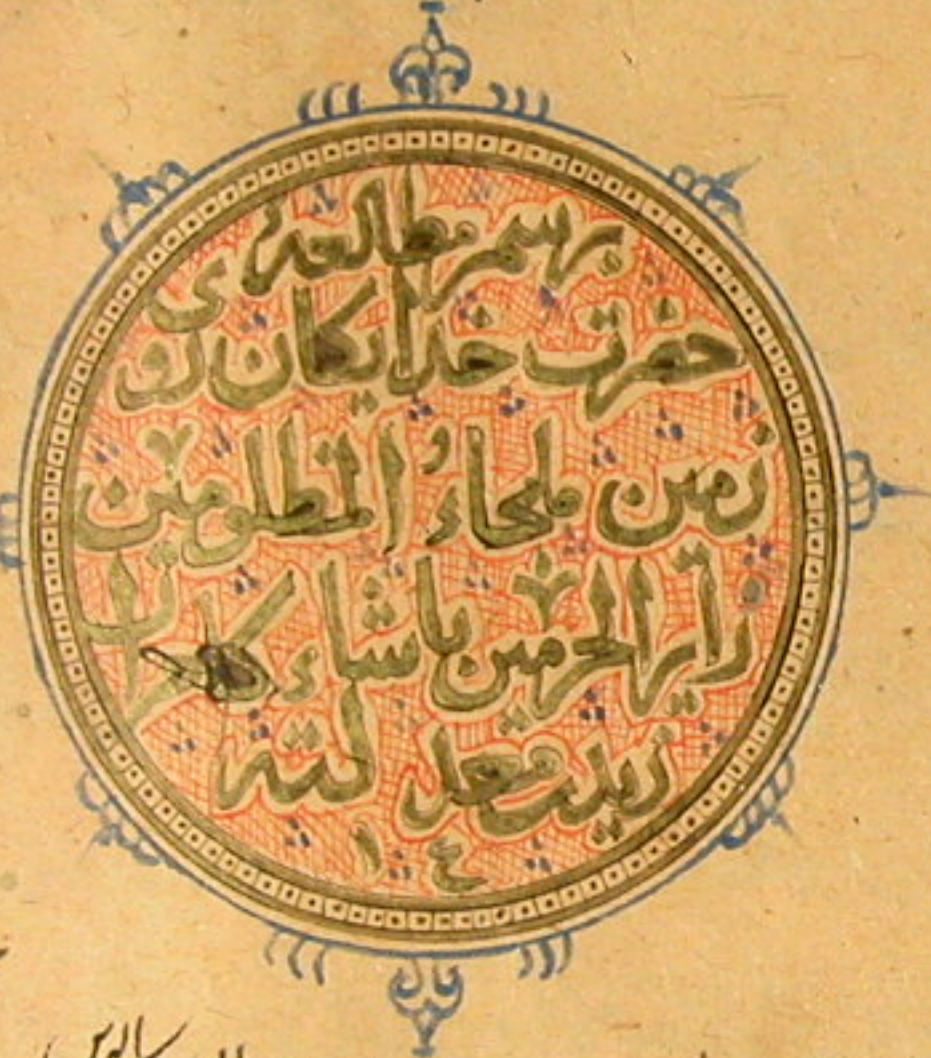 برسم مطالعهٔ
حضرت خدایکان روی
زمین ملجاء المظلومین
زایر الحرمین پاشاء
زیدت معدلته